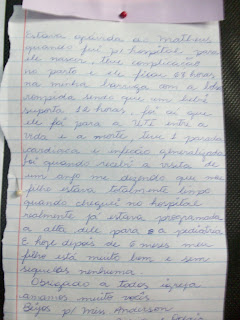 Estava grávida do Matheus
quando fui p/ hospital para
ele nascer, tive complicação
no parto e ele ficou 28 horas
na minha barriga com a bolsa
rompida sendo que um bebê
suporta 12 horas, foi ai que
ele foi para a UTI entre a
vida e a morte, teve 1 parada
cardíaca e infecção generalizada
foi quando recebi a visita de
um anjo me dizendo que meu
filho estava totalmente limpo
quando cheguei no hospital
realmente já estava programada
a alta dele para a pediatria
E hoje depois de 6 meses meu
filho está muito bem e sem
sequelas nenhuma
Obrigado a todos igreja
amamos muito vocês
Beijos p/ Miss Anderson